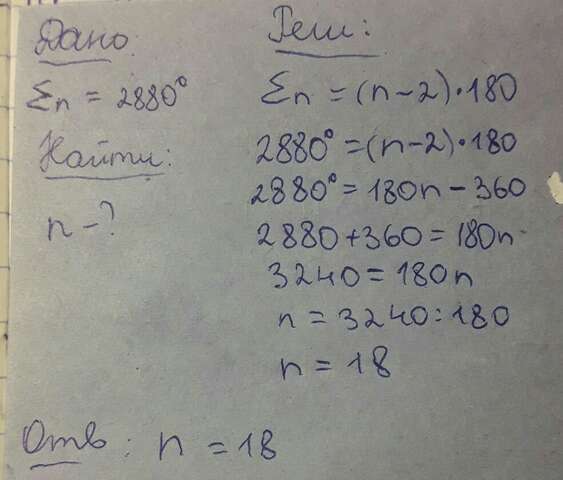 Дано
Σn = 2880°
Найти:
n - ?
Реш:
Σn = (n-2)·180
2880° = (n-2)·180
2880° = 180n - 360
2880 + 360 = 180n
3240 = 180n
n = 3240:180
n = 18
Отв: n = 18